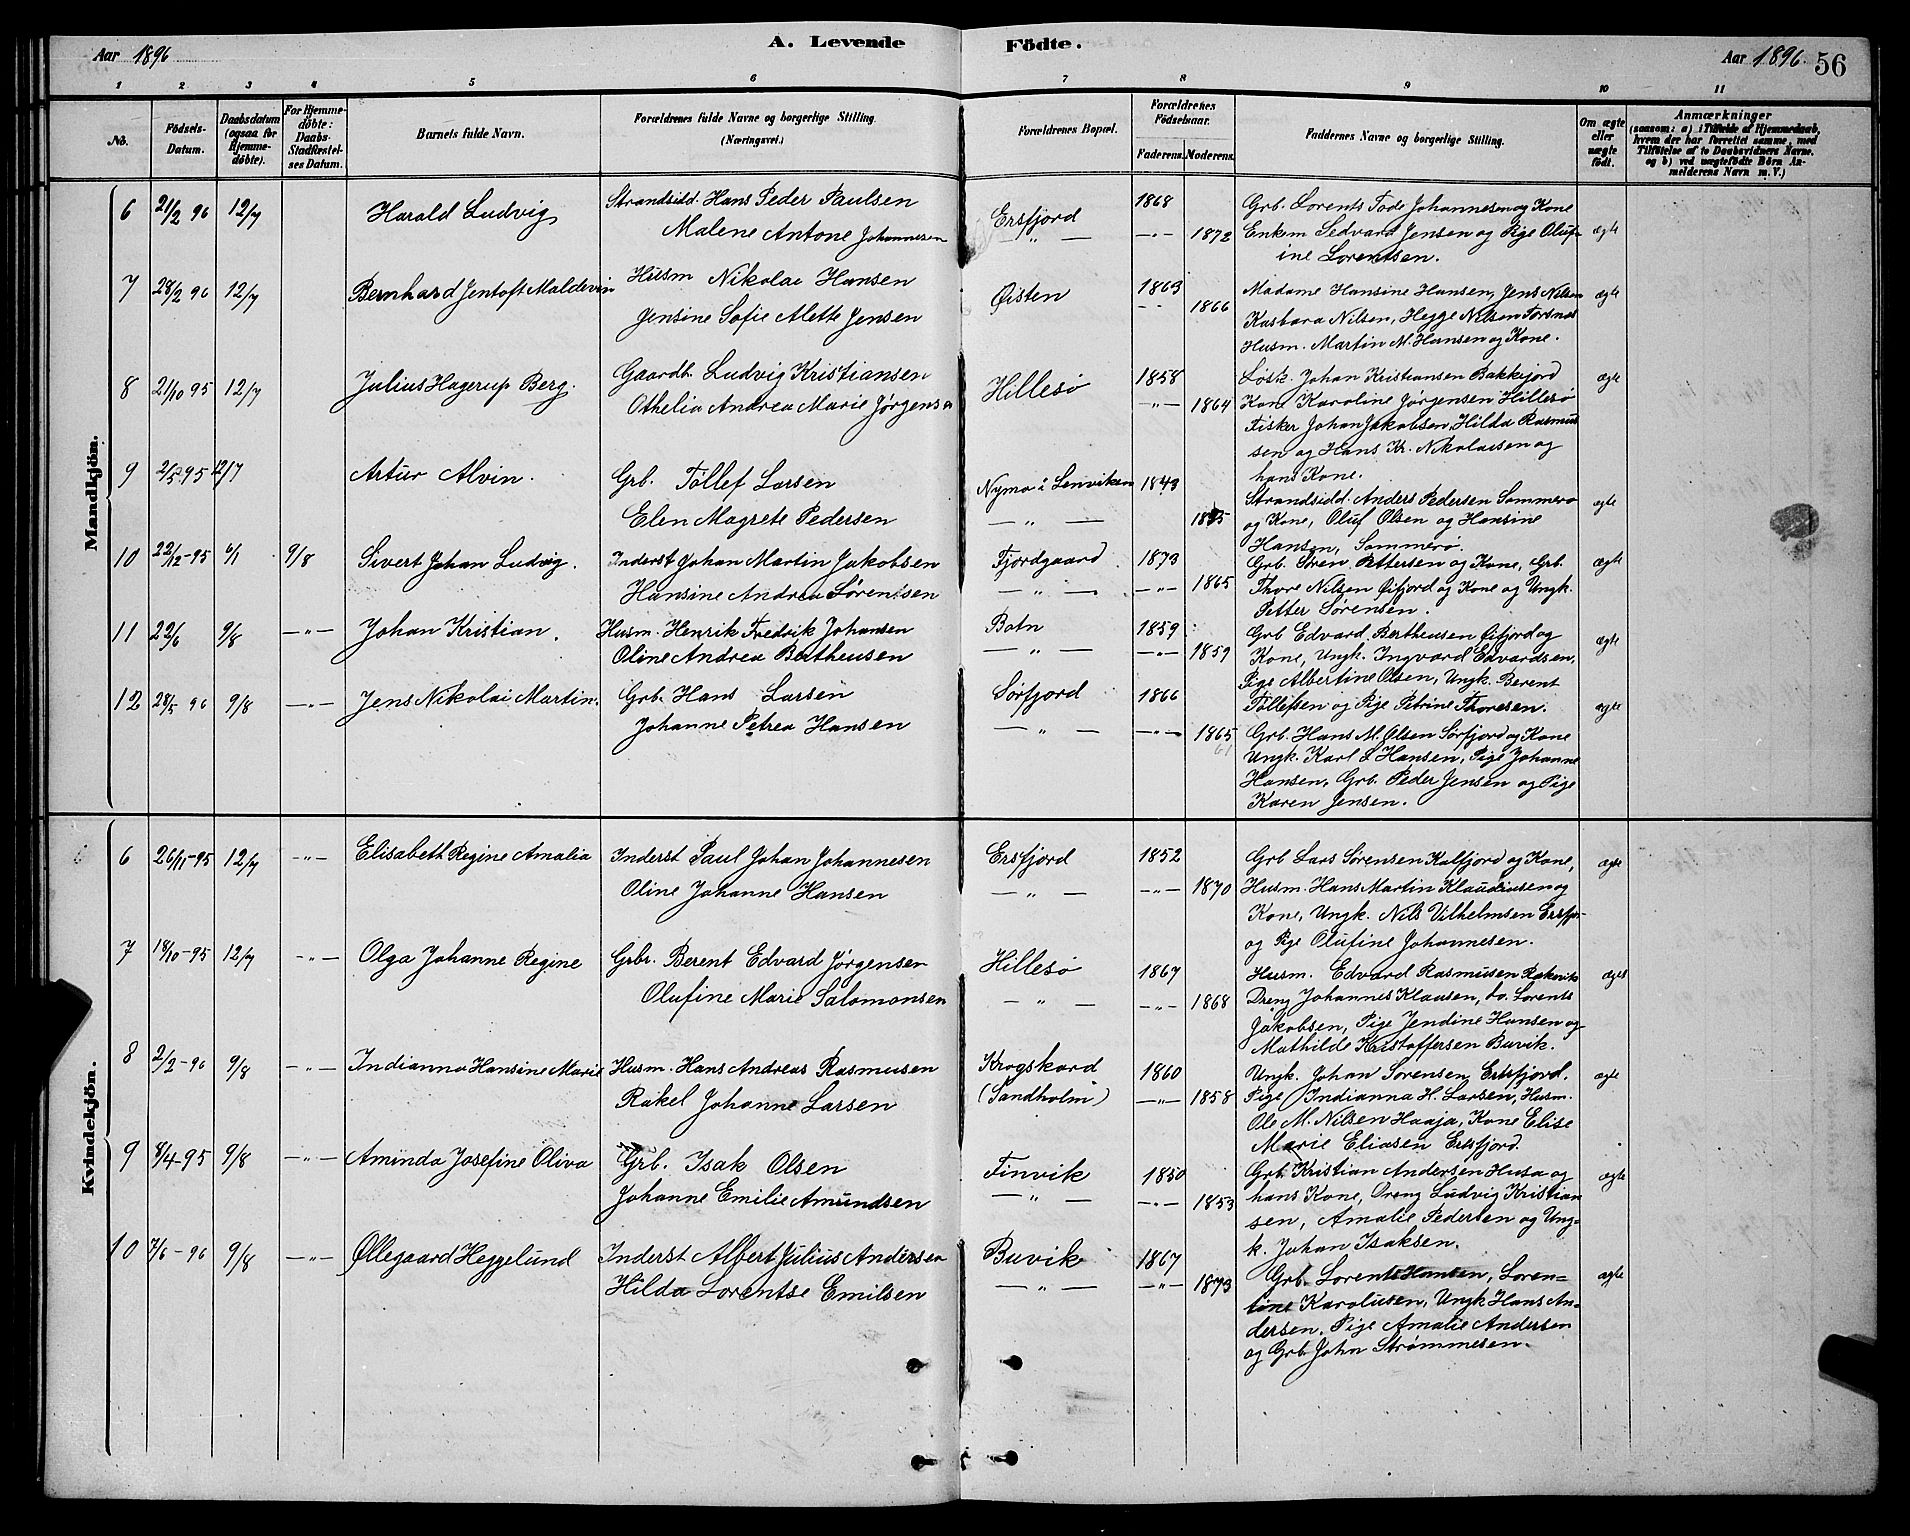 Aar 1896
A. Levende Födte.
Aar 1896.
56
1 2 3 4 5 6 7 8 9 10 11
No.
Födsels-Datum.
Daabsdatum (ogsaa for Hjemme-döbte).
For Hjemme-döbte: Daabs-Stadfæstel-ses Datum.
Barnets fulde Navn.
Forældrenes fulde Navne og borgerlige Stilling. (Næringsvei.)
Forældrenes Bopæl.
Forældrenes Födselsaar.
Faderens. Moderens.
Faddernes Navne og borgerlige Stilling.
Om ægte eller uægte födt.
Anmærkninger (saasom: a) i Tilfælde af Hjemmedaab, hvem der har forrettet samme, med Tilföielse af to Daabsvidners Navne. og b) ved uægtefödte Börn An-melderens Navn m. V.)
Mandkjön.
6 21/2 96 12/7 Harald Ludvig
Strandsidd. Hans Peder Paulsen
Malene Antone Johannesen
Ersfjord 1868
— " — -"- 1872
Grb. Lorents Tode Johannesen og Kone
Enkem Sedvard Jensen og Pige Oluf-
ine Lorentsen.
ægte
7 28/2 96 12/7 Bernhard Jentoft Maldevin
Husm Nikolai Hansen
Jensine Sofie Alette Jensen
Øisten 1863
-"- 1866
Madame Hansine Hansen, Jens Nilsen
Kasbara Nilsen, Hegge Nilsen Torsnes
Husm. Martin M. Hansen og Kone.
ægte
8 21/10 95 12/7 Julius Hagerup Berg.
Gaardb. Ludvig Kristiansen
Othelia Andrea Marie Jørgensen
Hillesø 1858
-"- 1864
Løsk. Johan Kristiansen Bakkejord
Kone Karoline Jørgensen Hillesø
Fisker Johan Jakobsen, Hilda Rasmus
sen og Hans Kr. Nikolaisen og
hans Kone.
ægte
9 2/5 95 12/7 Artur Alvin.
Grb. Tollef Larsen
Elen Magrete Pedersen
Nymo i Lenviken 1843
— " — 1855
Strandsidd. Anders Pedersen Sommerø
og Kone, Oluf Olsen og Hansine
Hansen, Sommerø.
ægte
10 22/12-95 6/1 9/8 Sivert Johan Ludvig.
Inderst Johan Martin Jakobsen
Hansine Andrea Sørentsen
Fjordgaard 1873
— " — -"- 1865
Grb. Søren Pettersen og Kone, Grb.
Thore Nilsen Øifjord og Kone og Ungk.
Petter Sørensen.
ægte
11 22/6 9/8 -"- Johan Kristian.
Husm. Henrik Fredvik Johansen
Oline Andrea Bertheusen
Botn 1859
— " — -"- 1859
Grb Edvard Bertheusen Øifjord og
Kone, Ungk. Ingvard Edvardsen,
Pige Albertine Olsen, Ungk. Berent
Tollefsen og Pige Petrine Thoresen.
ægte
12 28/5 96 9/8 -"- Jens Nikolai Martin.
Grb. Hans Larsen
Johanne Petrea Hansen
Sørfjord 1866
— " — -"- 1865
61
Grb. Hans M. Olsen Sørfjord og Kone
Ungk. Karl L Hansen, Pige Johanne
Hansen, Grb. Peder Jensen og Pige
Karen Jensen.
ægte
Kvindekjön.
6 26/11-95 12/7 -"- Elisabeth Regine Amalia
Inderst Paul Johan Johannesen
Oline Johanne Hansen
Ersfjord 1852
— " — -"- 1870
Grb Lars Sørensen Kalfjord og Kone,
Husm. Hans Martin Klaudiusen og
Kone, Ungk. Nils Vilhelmsen Ersfj.-
og Pige Olufine Johannesen.
ægte
7 18/10-95 12/7 -"- Olga Johanne Regine
Grbr. Berent Edvard Jørgensen
Olufine Marie Salomonsen
Hillesø 1867
— " — -"- 1868
Husm. Edvard Rasmusen Rakvik
Dreng Johannes Klausen, do. Lorents
Jakobsen, Pige Jendine Hansen og
Mathilde Kristoffersen Buvik.
ægte
8 2/2-96 9/8 -"- Indianna Hansine Marie
Husm. Hans Andreas Rasmusen
Rakel Johanne Larsen
Krogskard 1860
(Sandholm) -"- 1858
Ungk. Johan Sørensen, Ersfjord.
Pige Indianna H. Larsen, Husm.
Ole M. Nilsen Haaja, Kone Elise
Marie Eliasen Ersfjord.
ægte
9 8/4-95 9/8 -"- Aminda Josefine Oliva
Grb. Isak Olsen
Johanne Emilie Amundsen
Finvik 1850
— " — -"- 1853
Grb. Kristian Andersen Husa og
hans Kone, Dreng Ludvig Kristian
sen, Amalie Pedersen og Ung-
k. Johan Isaksen.
ægte
10 7/6-96 9/8 -"- Øllegaard Heggelund
Inderst Albert Julius Andersen
Hilda Lorentse Emilsen
Buvik 1867
— " — -"- 1873
Grb. Lorents Hansen, Loren-
tine Karolusen, Ungk Hans An-
dersen, Pige Amalie Andersen
og Grb. John Strømmesen.
ægte